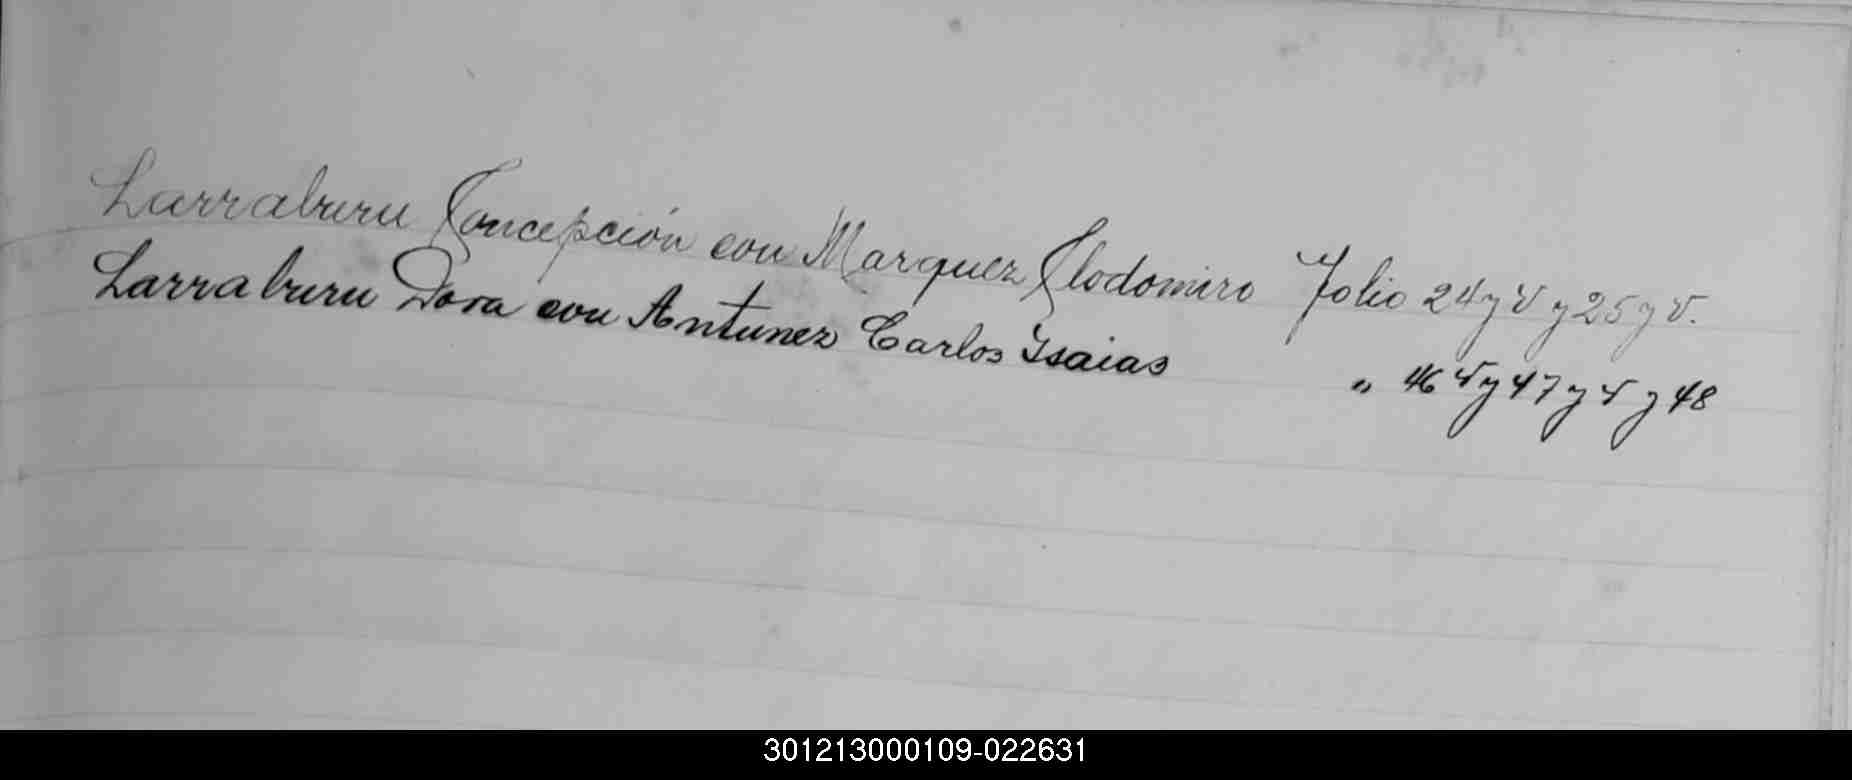 Larraburu Concepción con Marquez Clodomiro Folio 24 y v y 25 y v.
Larraburu Dora con Antunez Carlos Isaias " 46 v y 47 y v y 48
301213000109-022631